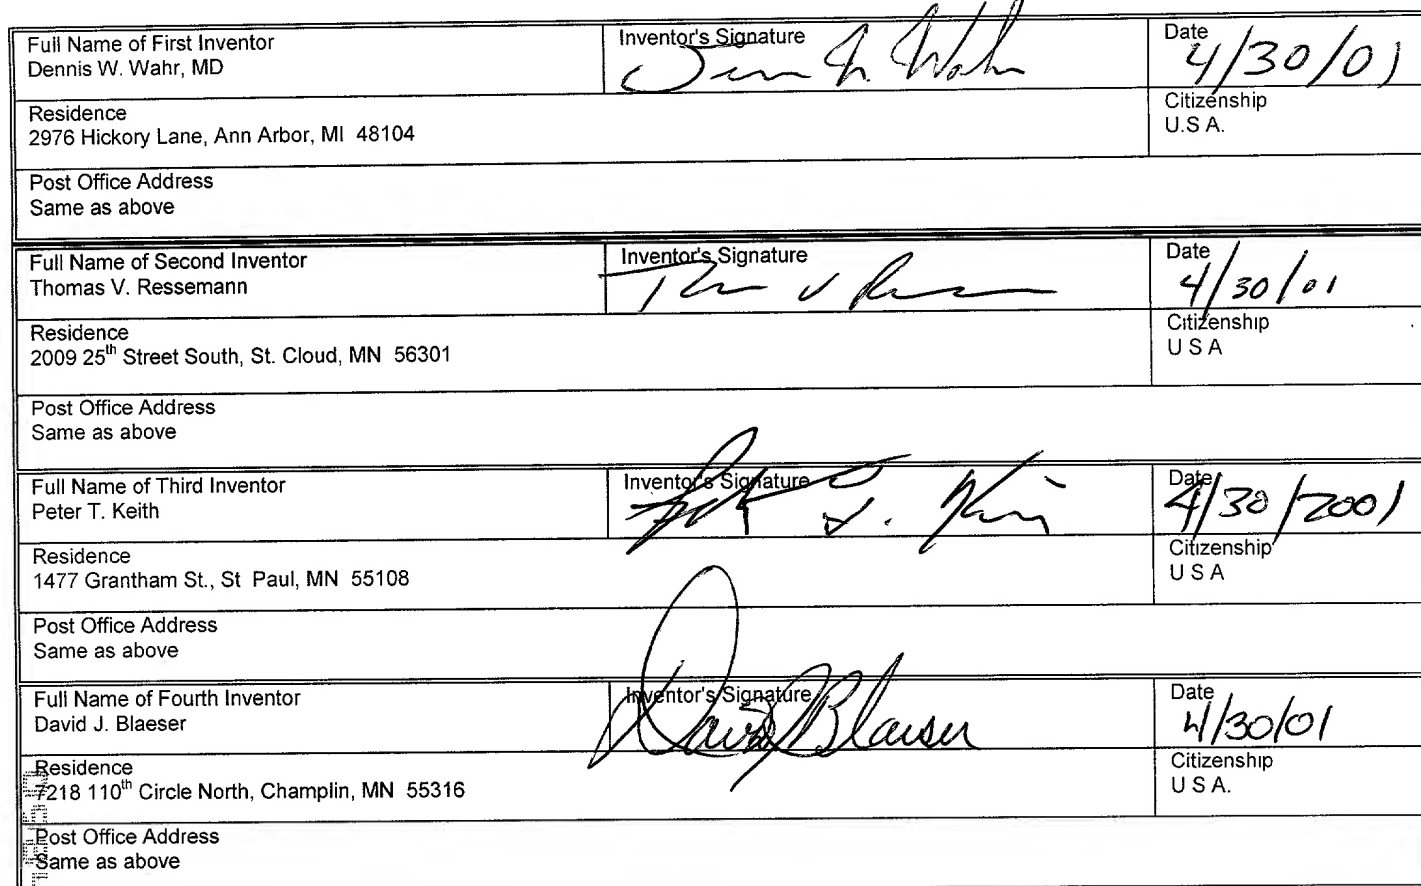 Full Name of First Inventor
Dennis W. Wahr, MD
Inventor's Signature
Date
4/30/01
Residence
2976 Hickory Lane, Ann Arbor, MI 48104
Citizenship
U.S A.
Post Office Address
Same as above
Full Name of Second Inventor
Thomas V. Ressemann
Inventor's Signature
Date
4/30/01
Residence
2009 25th Street South, St. Cloud, MN 56301
Citizenship
U S A
Post Office Address
Same as above
Full Name of Third Inventor
Peter T. Keith
Inventor's Signature
Date
4/30/2001
Residence
1477 Grantham St., St Paul, MN 55108
Citizenship
U S A
Post Office Address
Same as above
Full Name of Fourth Inventor
David J. Blaeser
Inventor's Signature
David J Blaeser
Date
4/30/01
Residence
7218 110th Circle North, Champlin, MN 55316
Citizenship
U S A.
Post Office Address
Same as above